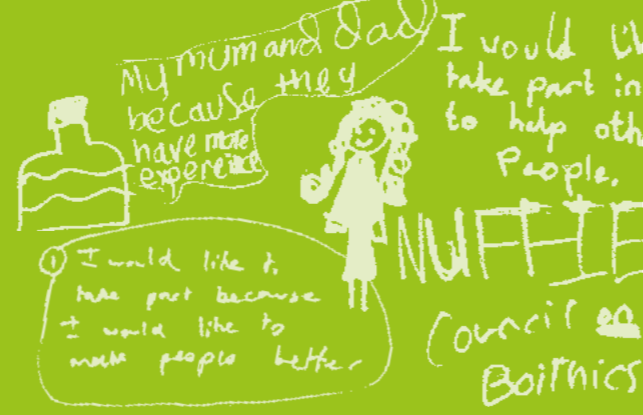 My mum and dad
because they
have more
expereince
I vould
take part in
to help oth
People.
① I would like to
take part because
I would like to
make people better
NUFFIE
Council on
Boithics